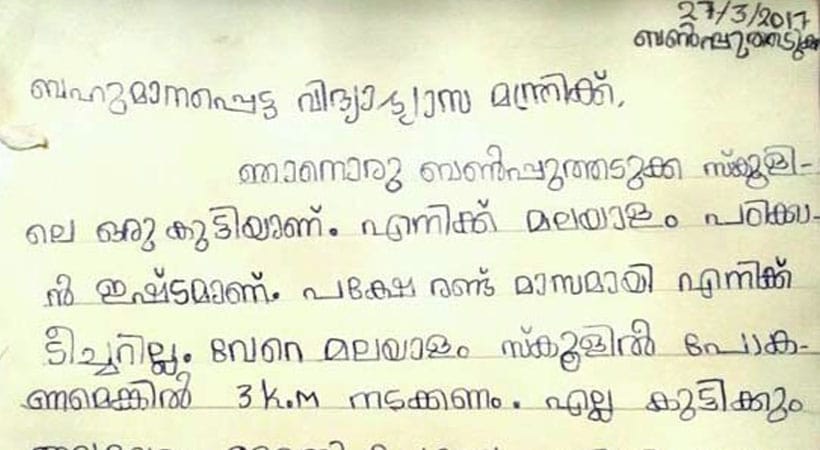 27/3/2017
ബൺപ്പുത്തടുക്ക
ബഹുമാനപ്പെട്ട വിദ്യാഭ്യാസ മന്ത്രിക്ക്,
ഞാനൊരു ബൺപ്പുത്തടുക്ക സ്കൂളി-
ലെ ഒരു കുട്ടിയാണ്. എനിക്ക് മലയാളം പഠിക്കാ-
ൻ ഇഷ്ടമാണ്. പക്ഷേ രണ്ട് മാസമായി എനിക്ക്
ടീച്ചറില്ല. വേറെ മലയാളം സ്കൂളിൽ പോക-
ണമെങ്കിൽ 3 K.M നടക്കണം. എല്ല കുട്ടിക്കും